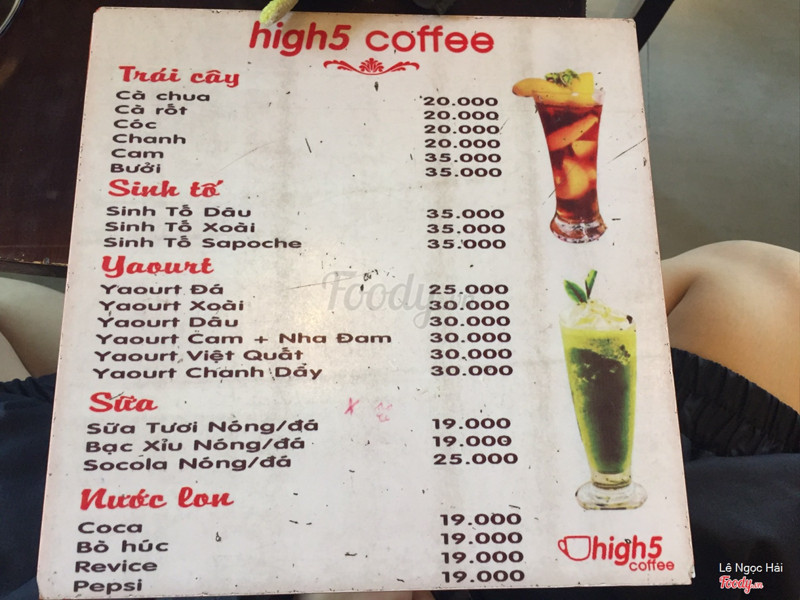 high5 coffee
Trái cây
Cà chua 20.000
Cà rốt 20.000
Cóc 20.000
Chanh 20.000
Cam 35.000
Bưởi 35.000
Sinh tố
Sinh Tố Dâu 35.000
Sinh Tố Xoài 35.000
Sinh Tố Sapoche 35.000
Yaourt
Yaourt Đá 25.000
Yaourt Xoài 30.000
Yaourt Dâu 30.000
Yaourt Cam + Nha Đam 30.000
Yaourt Việt Quất 30.000
Yaourt Chanh Dẩy 30.000
Sữa
Sữa Tươi Nóng/đá 19.000
Bạc Xỉu Nóng/đá 19.000
Socola Nóng/đá 25.000
Nước lon
Coca 19.000
Bò húc 19.000
Revice 19.000
Pepsi 19.000
high5
coffee
Foody.vn
Lê Ngọc Hải
Foody.vn